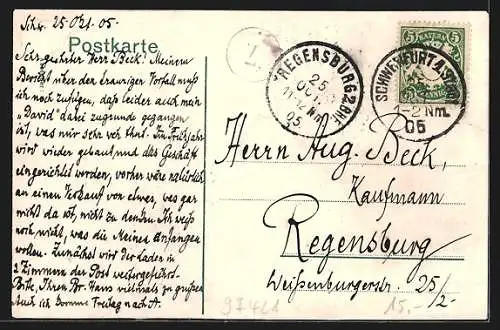 Schw. 25. Okt. 05.
Postkarte
Sehr geehrter Herr Beck! Meinem
Bericht über den traurigen Vorfall muß
ich noch zufügen, daß leider auch mein
"David" dabei zugrunde gegangen
ist, was mir sehr weh thut. Im Frühjahr
wird wieder gebaut und das Geschäft
eingerichtet worden, vorher wäre natürlich
an einen Verkauf von etwas, was gar
nicht da ist, nicht zu denken. Ich weiß
noch nicht, was die Meinen anfangen
wollen. Zunächst wird der Laden in
2 Zimmern der Post weitergeführt.
Bitte, Ihren Br. Hans vielmals zu grüßen
Auch ich komme Freitag nach A.
REGENSBURG 2 BHf.
25
OCT
11-12 Nm
05
BAYERN
5
5
SCHWEINFURT
1-2 Nm.
05
Herrn Aug. Beck,
Kaufmann
Regensburg
Weißenburgerstr. 25/2.
97421
15,-